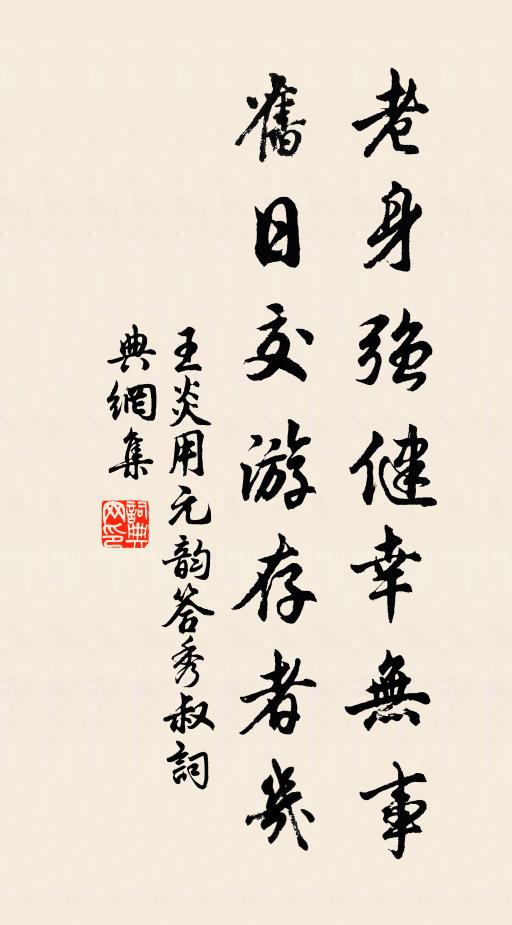 老身強健幸無事
舊日交游存者幾
王炎用元韵答秀叔詞
典網集
詞典
网印